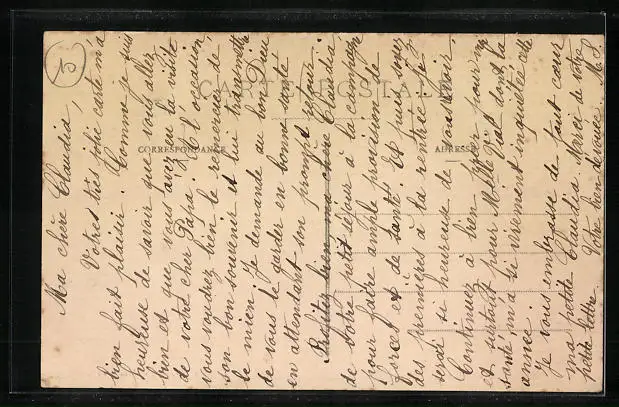 5
CARTE POSTALE
CORRESPONDANCE
ADRESSE
Ma chère Claudia,
Votre très jolie carte m'a
bien fait plaisir. Comme je suis
heureuse de savoir que vous allez
bien et que vous avez eu la visite
de votre cher Papa. A l'occasion,
vous voudrez bien le remercier de
son bon souvenir et lui transmettre
le mien. Je demande au bon Dieu
de vous le garder en bonne santé
en attendant son prompt retour.
Profitez bien, ma chère Claudia
de votre petit séjour à la campagne
pour faire ample provision de
forces et de santé. Et puis soyez
des premières à la rentrée, je
serai si heureuse de vous revoir.
Continuez à bien prier pour
et surtout pour Melle dont la
santé m'a si vivement inquiétée cette
année.
Je vous embrasse de tout cœur
ma petite Claudia. Merci de votre
petite lettre. Votre bien dévouée. M.